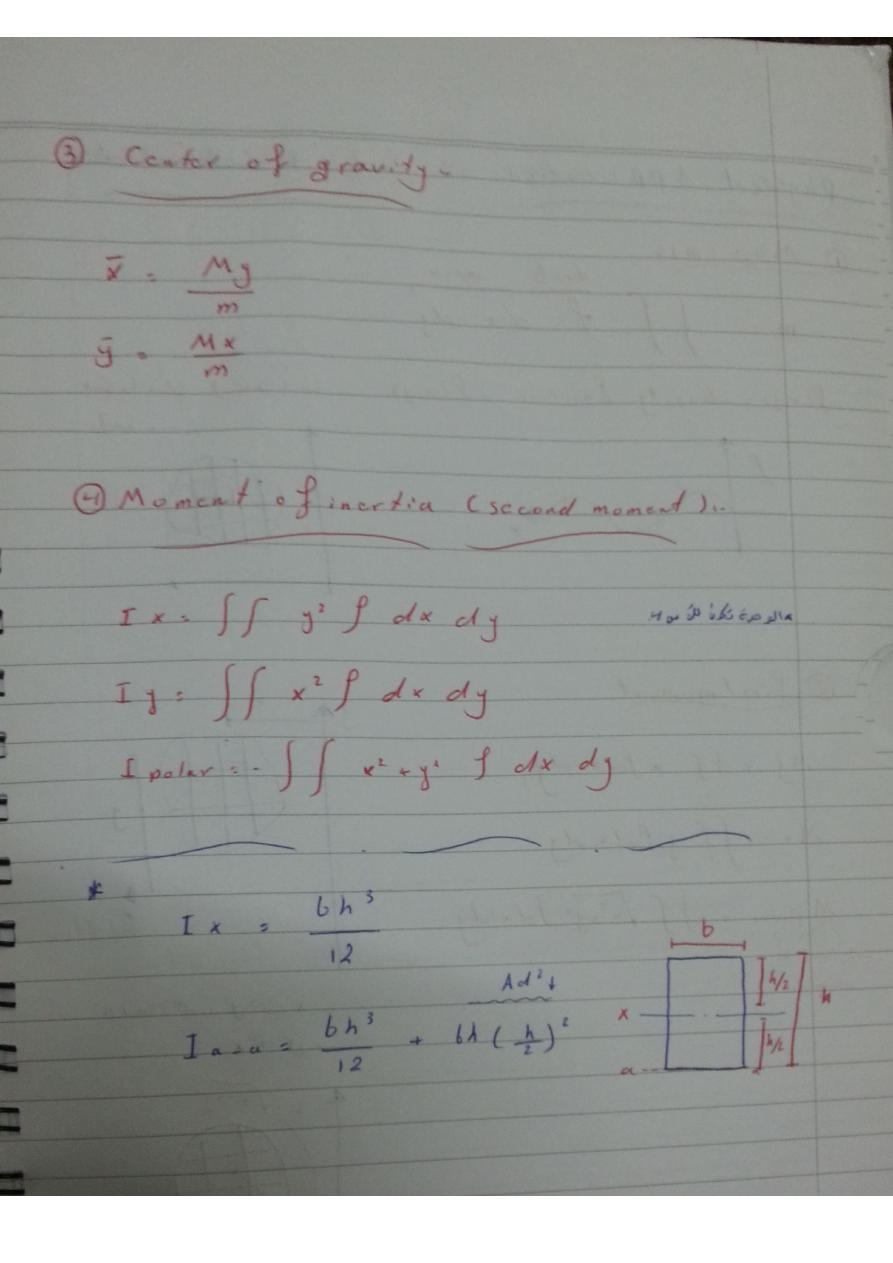 ③ Center of gravity.
x̄ = My / m
ȳ = Mx / m
④ Moment of inertia (second moment)..
I x = ∫∫ y² ρ dx dy
I y = ∫∫ x² ρ dx dy
I polar = ∫∫ x² + y² ρ dx dy
*
I x = bh³ / 12
Ad² ↓
I a-a = bh³ / 12 + bh (h/2)²
b
h/2
h
x
h/2
a